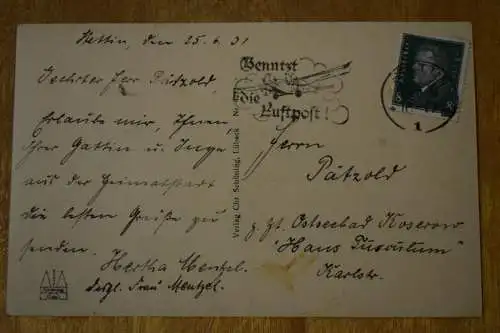 Stettin, den 25.6.31
Sehrter Herr Pätzold,
Erlaube mir, Ihnen
Ihrer Gattin u. Inge
aus der Heimatstadt
die besten Grüße zu
senden. Hertha Menzel.
Desgl. Frau Mentzel.
Benutzt
die
Luftpost!
1
8 8
Verlag Chr. Schöning, Lübeck Nr.
Herrn
Pätzold
z. Zt. Ostseebad Koserow
"Haus Tusculum"
Karlstr.